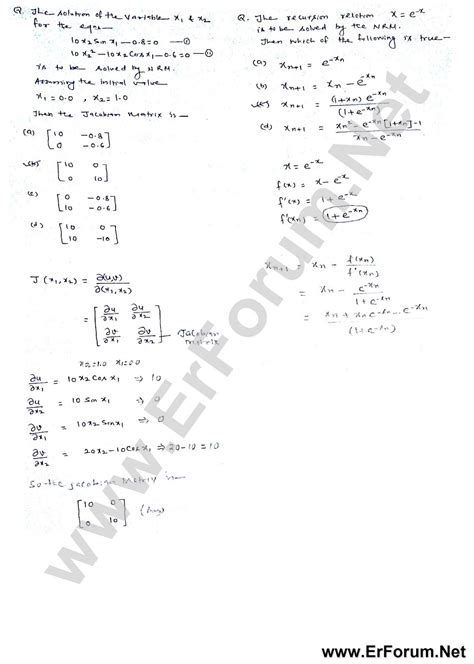 Q. The solution of the variable x₁ & x₂
for the eqns —
10x₂ sin x₁ — 0.8 = 0 — ①
10x₂² — 10x₂ cos x₁ — 0.6 = 0 — ⑪
is to be solved by NRM.
Assuming the initial value
x₁ = 0.0 , x₂ = 1.0
Then the Jacobian matrix is —
(a) [10 -0.8
0 -0.6]
(b) [10 0
0 10]
(c) [0 -0.8
10 -0.6]
(d) [10 0
10 -10]
J(x₁, x₂) = ∂(u,v)/∂(x₁,x₂)
= [∂u/∂x₁ ∂u/∂x₂
∂v/∂x₁ ∂v/∂x₂] — Jacobian
matrix
x₂=1.0 x₁=0.0
∂u/∂x₁ = 10x₂ cos x₁ ⇒ 10
∂u/∂x₂ = 10 sin x₁ ⇒ 0
∂v/∂x₁ = 10x₂ sin x₁ ⇒ 0
∂v/∂x₂ = 20x₂ - 10 cos x₁ ⇒ 20-10 = 10
So the jacobian Metrix is —
[10 0
0 10]
Q. The recursion relation x = e⁻ˣ
is to be solved by the N.R.M.
Then which of the following is true —
(a) xₙ₊₁ = e^(-xₙ)
(b) xₙ₊₁ = xₙ - e^(-xₙ)
(c) xₙ₊₁ = (1+xₙ) e^(-xₙ) / (1+e^(-xₙ))
(d) xₙ₊₁ = xₙ² - e^(-xₙ)[1+xₙ]-1 / xₙ - e^(-xₙ)
x = e⁻ˣ
f(x) = x - e⁻ˣ
f'(x) = 1 + e⁻ˣ
f'(xₙ) = 1 + e^(-xₙ)
xₙ₊₁ = xₙ - f(xₙ)/f'(xₙ)
= xₙ - e^(-xₙ) / 1+e^(-xₙ)
www.ErForum.Net
www.ErForum.Net